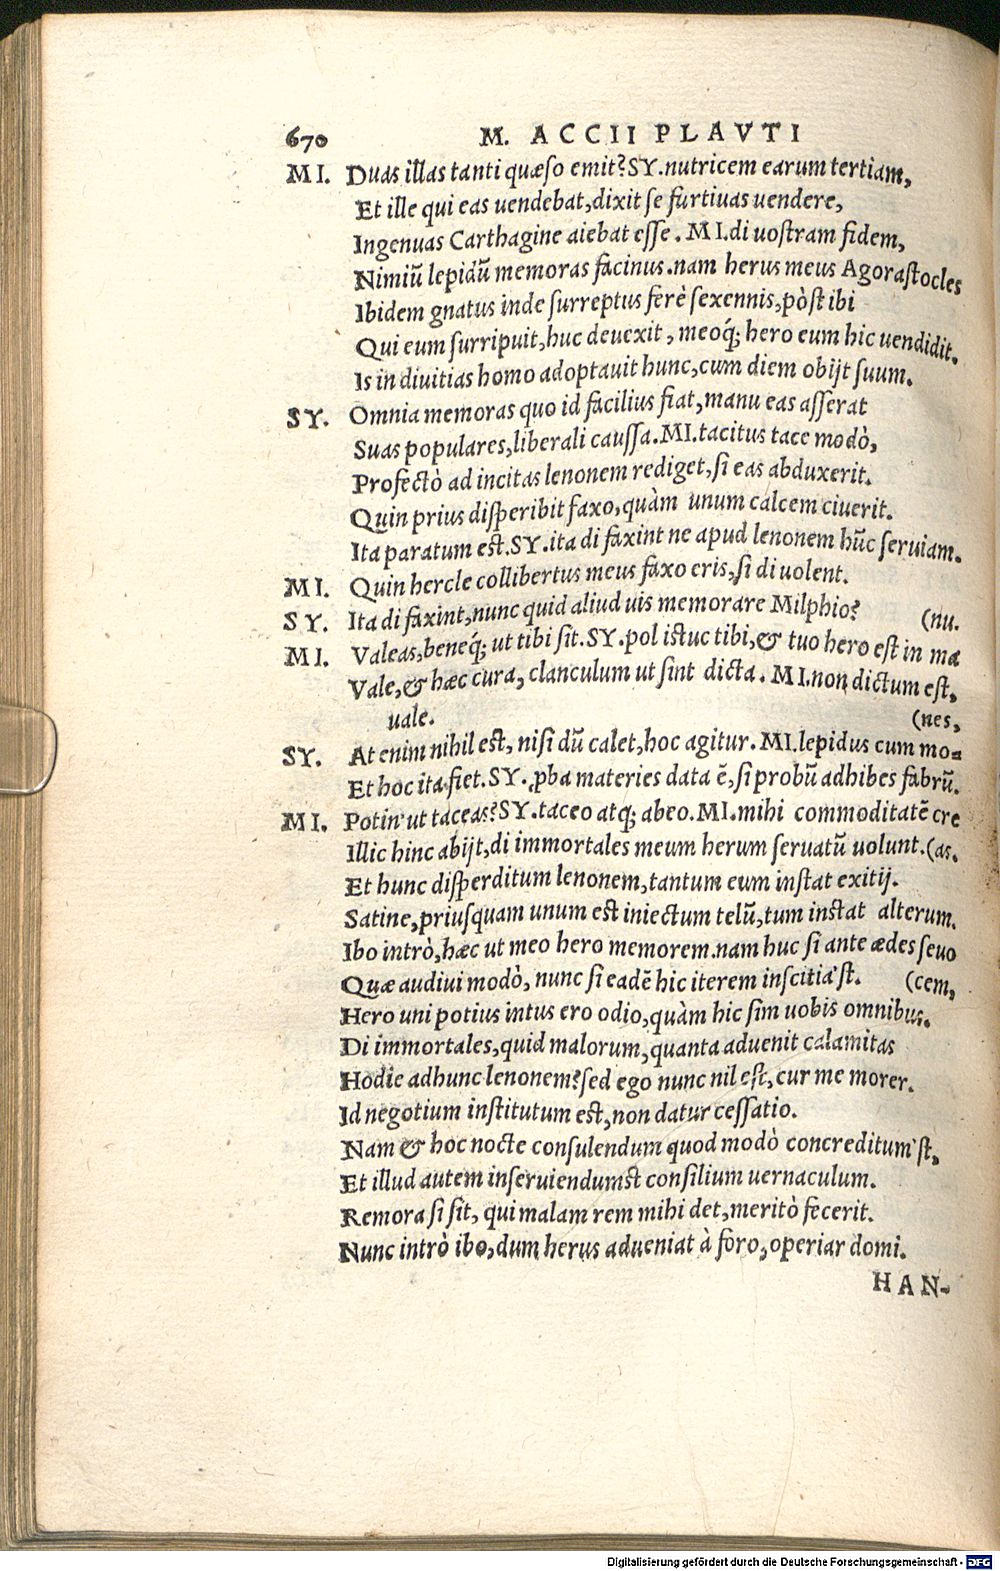 670 M. ACCII PLAVTI
MI. Duas illas tanti quæso emit? SY. nutricem earum tertiam,
Et ille qui eas uendebat, dixit se furtiuas uendere,
Ingenuas Carthagine aiebat esse. MI. di uostram fidem,
Nimiũ lepidũ memoras facinus. nam herus meus Agorastocles
Ibidem gnatus inde surreptus ferè sexennis, pòst ibi
Qui eum surripuit, huc deuexit, meoq́; hero eum hic uendidit.
Is in diuitias homo adoptauit hunc, cum diem obijt suum.
SY. Omnia memoras quo id facilius fiat, manu eas asserat
Suas populares, liberali caussa. MI. tacitus tace modò,
Profectò ad incitas lenonem rediget, si eas abduxerit.
Quin prius disperibit faxo, quàm unum calcem ciuerit.
Ita paratum est. SY. ita di faxint ne apud lenonem hũc seruiam.
MI. Quin hercle collibertus meus faxo eris, si di uolent.
SY. Ita di faxint, nunc quid aliud uis memorare Milphio? (nu.
MI. Valeas, beneq́; ut tibi sit. SY. pol istuc tibi, & tuo hero est in ma
Vale, & hæc cura, clanculum ut sint dicta. MI. non dictum est,
uale. (nes,
SY. At enim nihil est, nisi dũ calet, hoc agitur. MI. lepidus cum mo=
Et hoc ita fiet. SY. ꝓba materies data ẽ, si probũ adhibes fabrũ.
MI. Potin' ut taceas? SY. taceo atq; abeo. MI. mihi commoditatẽ cre
Illic hinc abijt, di immortales meum herum seruatũ uolunt. (as.
Et hunc disperditum lenonem, tantum eum instat exitij.
Satine, priusquam unum est iniectum telũ, tum instat alterum.
Ibo intrò, hæc ut meo hero memorem. nam huc si ante ædes seuo
Quæ audiui modò, nunc si eadẽ hic iterem inscitia'st. (cem,
Hero uni potius intus ero odio, quàm hic sim uobis omnibus.
Di immortales, quid malorum, quanta aduenit calamitas
Hodie adhunc lenonem? sed ego nunc nil est, cur me morer.
Id negotium institutum est, non datur cessatio.
Nam & hoc nocte consulendum quod modò concreditum'st,
Et illud autem inseruiendumst consilium uernaculum.
Remora si sit, qui malam rem mihi det, meritò fecerit.
Nunc intrò ibo, dum herus adueniat à foro, operiar domi.
HAN-
Digitalisierung gefördert durch die Deutsche Forschungsgemeinschaft - DFG